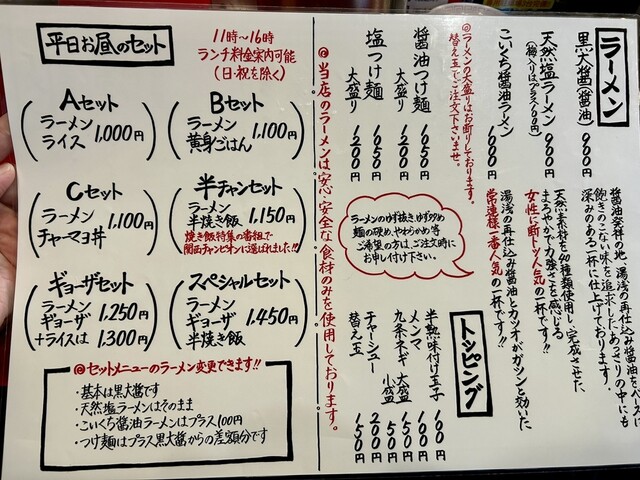 平日お昼のセット
11時〜16時
ランチ料金案内可能
(日・祝を除く)
Aセット
ラーメン
ライス
1,000円
Bセット
ラーメン
黄身ごはん
1,100円
Cセット
ラーメン
チャーマヨ丼
1,100円
半チャンセット
ラーメン
半焼き飯
1,150円
焼き飯特集の番組で
関西チャンピオンに選ばれました!!
ギョーザセット
ラーメン
ギョーザ
1,250円
+ライスは 1,300円
スペシャルセット
ラーメン
ギョーザ
半焼き飯
1,450円
@セットメニューのラーメン変更できます!!
・基本は黒大醬です
・天然塩ラーメンはそのまま
・こいくち醤油ラーメンはプラス100円
・つけ麺はプラス黒大醬からの差額分です
ラーメン
黒大醬(醤油) 900円
醤油発祥の地、湯浅の再仕込み醤油をベースに
飽きのこない味を追求したあっさりの中にも
深みのある一杯に仕上げております。
天然塩ラーメン 900円
(梅入りはプラス100円)
天然素材を40種類使用し、完成させた
まろやかで力強さを感じる
女性に断トツ人気の一杯です!!
こいくち醤油ラーメン 1000円
湯浅の再仕込み醤油とカツオがガツンと効いた
常連様一番人気の一杯です!!
@ラーメンの大盛りはお断りしております。
替え玉でご注文下さいませ。
醤油つけ麺 1050円
大盛り 1200円
塩つけ麺 1050円
大盛り 1200円
@当店のラーメンは安心・安全な食材のみを使用しております。
ラーメンのゆず抜き、ゆず炒め
麺の硬め、やわらかめ等
ご希望の方は、ご注文時に
お申し付け下さい。
トッピング
半熟味付け玉子 100円
メンマ 100円
九条ネギ 大盛 150円
小盛 50円
チャーシュー 200円
替え玉 150円